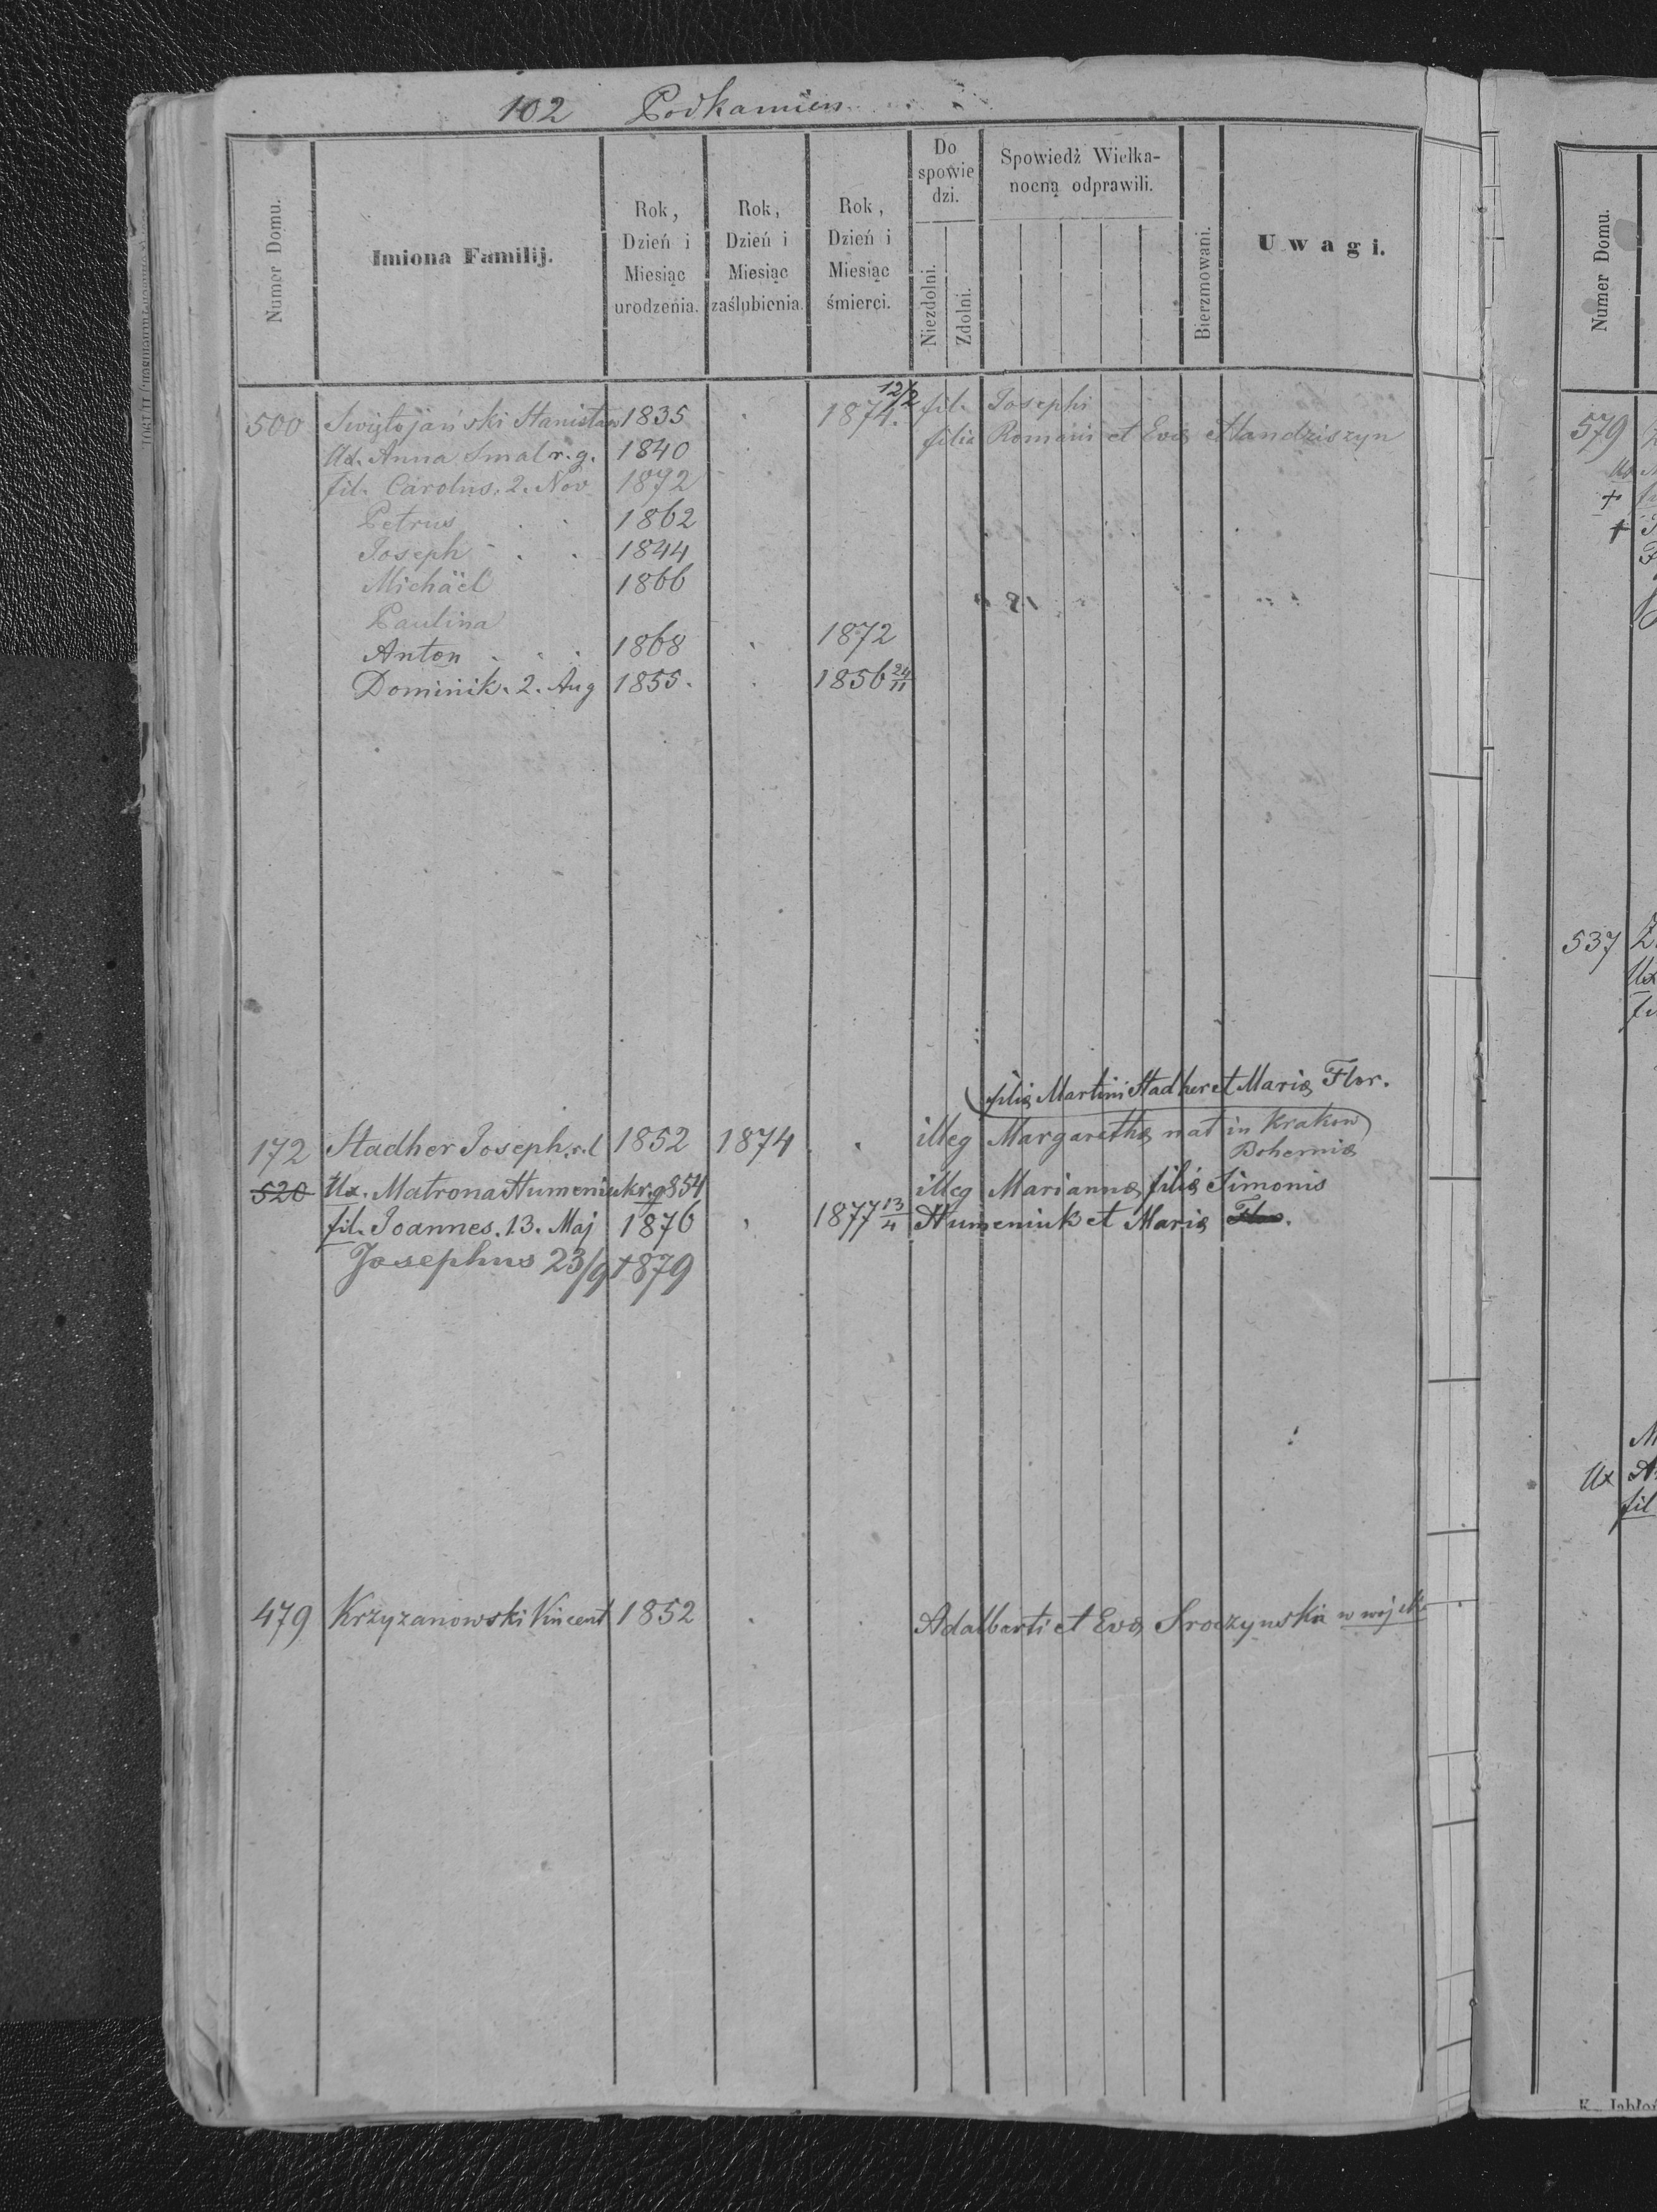 102 Podkamien
Numer Domu.
Imiona Familij.
Rok, Dzień i Miesiąc urodzenia.
Rok, Dzień i Miesiąc zaślubienia.
Rok, Dzień i Miesiąc śmierci.
Do spowie dzi.
Niezdolni.
Zdolni.
Spowiedź Wielka-
nocną odprawili.
Bierzmowani.
Uwagi.
500 Swiętojański Stanisław 1835 1874. 12/2 fil. Josephi
Ux. Anna Smal r. g. 1840 filia Romani et Eva Handziszyn
fil. Carolus. 2. Nov 1872
Petrus 1862
Joseph 1844
Michäel 1866
Paulina
Anton 1868 1872
Dominik. 2. Aug 1855. 1856 24/11
filia Martini Stadher et Maria Flor.
172 Stadher Joseph. r. l 1852 1874 illeg Margaretha nat in Krakow
Bohemia
520 Ux. Matrona Humeniuk r. g 854 illeg Marianna filia Simonis
fil. Joannes. 13. Maj 1876 1877 13/4 Humeniuk et Maria Flor.
Josephus 23/9 1879
479 Krzyzanowski Vincent 1852 Adalbarti et Eva Sroczynska w wojsku
Numer Domu.
579
Ux
+
+
537
Ux
Ux
fil
K. Jabłoń